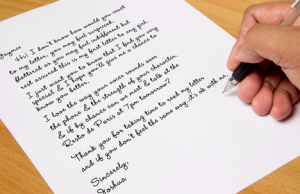 Jaymie
Hi! I don't know how would you react
to my letter, you may feel surprised,
flattered as you may feel indifferent but
rest assured this is my first letter to any girl.
I just want you to know that I find you very
special & I hope you'll give me a chance to
know you better.
I love the way your voice sounds over
the phone & the strength of your character,
& if by chance can we meet & talk at the
Resto de Paris at 7pm tomorrow?
Thank you for taking time to read my letter
and if you don't feel the same way, it's ok with me
Sincerely,
Joshua